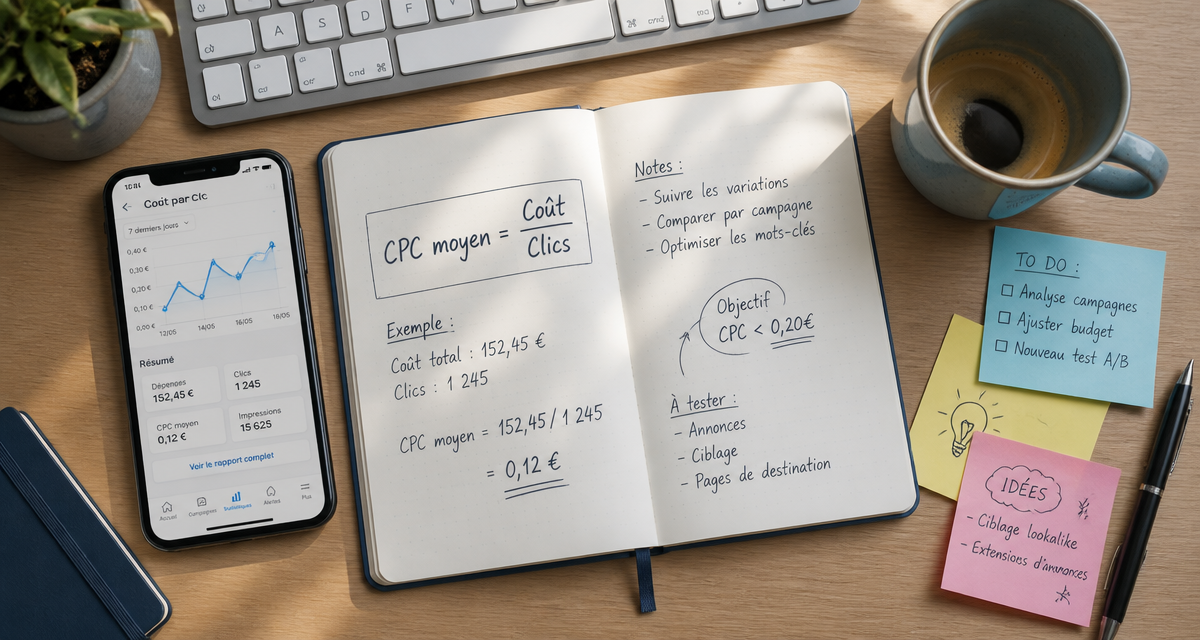 A
S
D
F
cmd
⌘ cmd
Coût par Clc
7 derniers jours
0,40 €
0,30 €
0,20 €
0,10 €
0,00 €
12/05
14/05
16/05
18/05
Résumé
Dépenses
152,45 €
Clics
1 245
CPC moyen
0,12 €
Impressions
15 625
Voir le rapport complet
Accueil
Campagnes
Statistiques
Alertes
Plus
CPC moyen = Coût
Clics
Exemple :
Coût total : 152,45 €
Clics : 1 245
CPC moyen = 152,45 / 1 245
= 0,12 €
Notes :
- Suivre les variations
- Comparer par campagne
- Optimiser les mots-clés
Objectif
CPC < 0,20€
À tester :
- Annonces
- Ciblage
- Pages de destination
TO DO :
Analyse campagnes
Ajuster budget
Nouveau test A/B
IDÉES
- Ciblage lookalike
- Extensions d'annonces